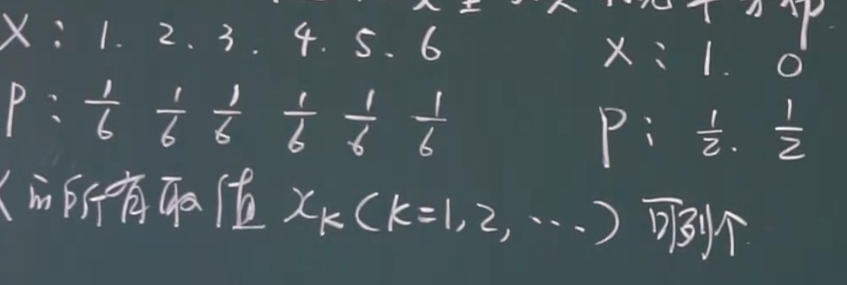 X: 1. 2. 3. 4. 5. 6 X: 1. 0
P: 1/6 1/6 1/6 1/6 1/6 1/6 P: 1/2. 1/2
X的所有取值 xₖ(k=1,2,…) 可列个